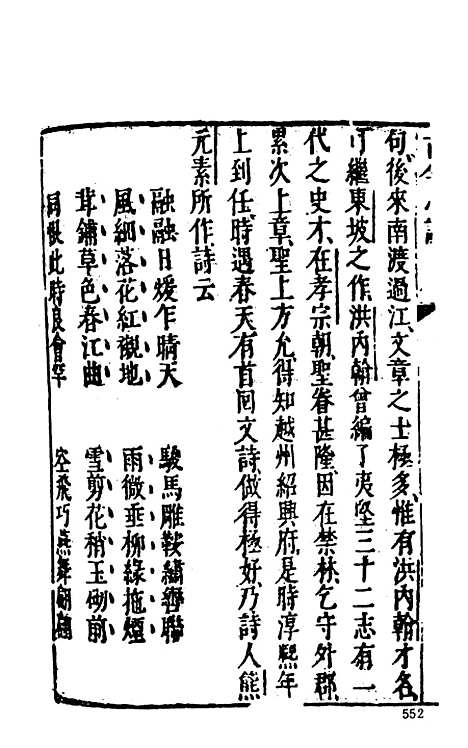 古今小說
句後來南渡過江、文章之士極多、惟有洪內翰才名、
可繼東坡之作、洪內翰曾編了夷堅三十二志、有一
代之史才、在孝宗朝、聖眷甚隆、因在禁林、乞守外郡、
累次上章、聖上方允、得知越州紹興府、是時淳熙年
上到任、時遇春天、有首回文詩、做得極好、乃詩人熊
元素所作、詩云
融融日煖乍晴天　駿馬雕鞍繡轡聯
風細落花紅襯地　雨微垂柳綠拖煙
茸鋪草色春江曲　雪剪花梢玉砌前
同恨此時良會罕　空飛巧燕舞翩翩
552